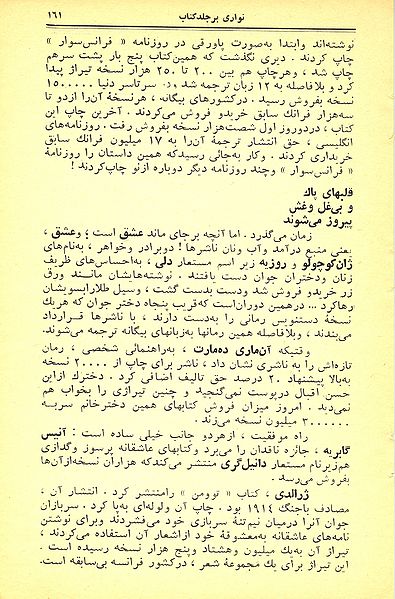 نواری بر جلد کتاب ۱۶۱
نوشته‌اند وابتدا به‌صورت پاورقی در روزنامه « فرانس‌سوار »
چاپ کردند . دیری نگذشت که همین‌کتاب پنج بار پشت سرهم
چاپ شد ، وهرچاپ هم بین ۲۰۰ تا ۲۵۰ هزار نسخه تیراژ پیدا
کرد و بلافاصله به ۱۲ زبان ترجمه شد و در سرتاسر دنیا ۱۵۰۰۰۰۰
نسخه بفروش رسید . درکشورهای بیگانه ، هرنسخهٔ آن‌را ازدو تا
سه‌هزار فرانك سابق خریدو فروش می‌کردند . آخرین چاپ این
کتاب ، دردوروز اول شصت‌هزار نسخه بفروش رفت . روزنامه‌های
انگلیسی ، حق انتشار ترجمهٔ آن‌را به ۱۷ میلیون فرانك سابق
خریداری کردند . وکار به‌جائی رسیدکه همین داستان را روزنامهٔ
« فرانس‌سوار » وچند روزنامه دیگر دوباره ازنو چاپ‌کردند !
قلبهای پاك
و بی‌غل وغش
پیروز می‌شوند
زمان می‌گذرد . اما آنچه برجای ماند عشق است ؛ وعشق ،
یعنی منبع درآمد وآب ونان ناشرها ! دوبرادر وخواهر ، به‌نام‌های
ژان‌کوچولو و روزیه زیر اسم مستعار دلی ، به‌احساس‌های ظریف
زنان ودختران جوان دست یافتند . نوشته‌هایشان مانند ورق
زر خریدو فروش شد ودست بدست گشت ، وسیل طلارابسویشان
رهاکرد ... درهمین دوران‌است که‌قریب بنجاه دختر جوان که هریك
نسخهٔ دستنویس رمانی را به‌دست دارند ، با ناشرها قرارداد
می‌بندند ، وبلافاصله همین رمانها به‌زبانهای بیگانه ترجمه می‌شوند.
وقتیکه آن‌ماری ده‌مارت ، به‌راهنمائی شخصی ، رمان
تازه‌اش را به ناشری نشان داد ، ناشر برای چاپ از ۲۰۰۰۰ نسخه
به‌بالا پیشنهاد ۲۰ درصد حق تالیف اضافی کرد . دخترك ازاین
حسن اقبال درپوست نمی‌گنجید و چنین تیراژی را بخواب هم
نمی‌دید . امروز میزان فروش کتابهای همین دخترخانم سربه
۳۰۰۰۰۰۰ میلیون نسخه می‌زند .
راه موفقیت ، ازهردو جانب خیلی ساده است : آنیس
گابریه ، جائزه ناقدان را می‌برد وکتابهای عاشقانه پرسوز وگدازی
هم‌زیرنام مستعار دانیل‌گری منتشر می‌کندکه هزاران نسخه‌ازآن‌ها
بفروش می‌رسد .
ژرالدی ، کتاب « توومن » رامنتشر کرد . انتشار آن ،
مصادف باجنگ ۱۹۱۴ بود . چاپ آن ولوله‌ای به‌پا کرد . سربازان
جوان آنرا درمیان نیم‌تنهٔ سربازی خود می‌فشردند وبرای نوشتن
نامه‌های عاشقانه به‌معشوقهٔ خود ازاشعار آن استفاده می‌کردند ،
تیراژ آن به‌یك میلیون وهشتاد وپنج هزار نسخه رسیده است .
این تیراژ برای یك مجموعهٔ شعر ، درکشور فرانسه بی‌سابقه است.